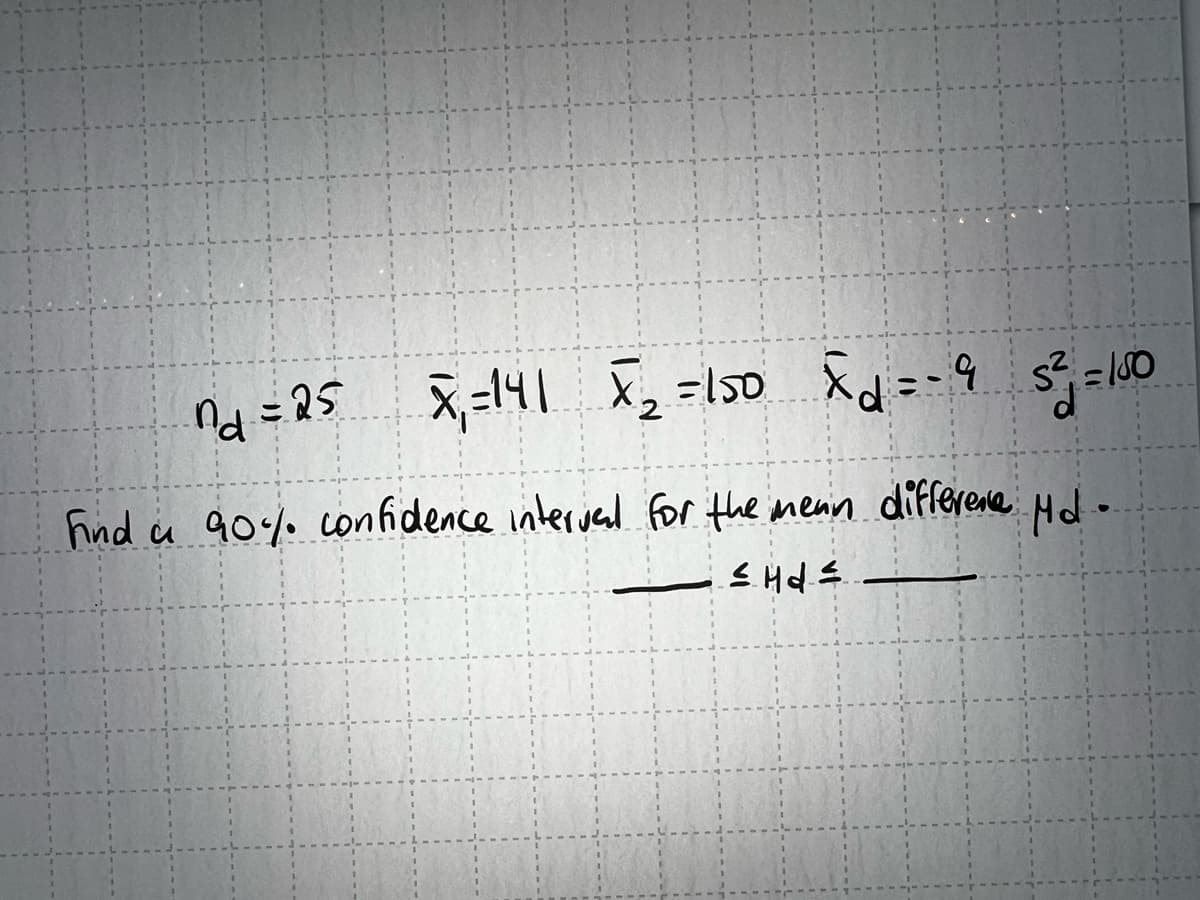 n_d = 25 x̄₁=141 x̄₂ =150 x̄d = -9 s²_d =180
Find a 90% confidence interval for the mean difference μd.
___ ≤ μd ≤ ___